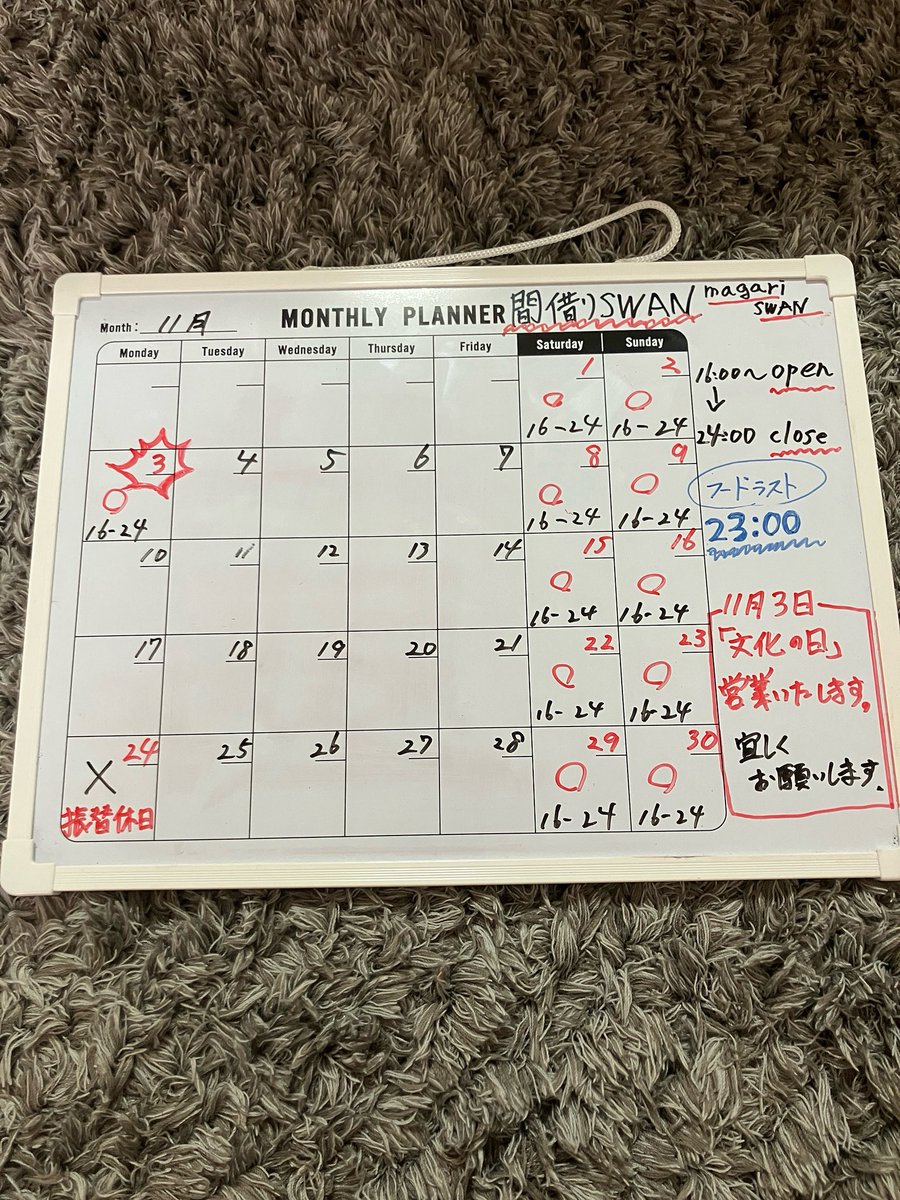 Month: 11月
MONTHLY PLANNER 間借りSWAN
magari
SWAN
Monday Tuesday Wednesday Thursday Friday Saturday Sunday
1 2
○ ○
16-24 16-24
3 4 5 6 7 8 9
○ ○ ○
16-24 16-24 16-24
10 11 12 13 14 15 16
○ ○
16-24 16-24
17 18 19 20 21 22 23
○ ○
16-24 16-24
24 25 26 27 28 29 30
X ○ ○
振替休日 16-24 16-24
16:00~ open
↓
24:00 close
フードラスト
23:00
11月3日
「文化の日」
営業いたします。
宜しく
お願いします。